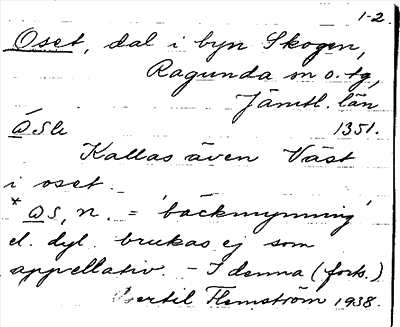 1-2.
Oset, dal i byn Skogen,
Ragunda sn o. tg,
Jämtl. län
1351.
Kallas även Väst
i oset.
bäckmynning'
el. dyl. brukas ej som
appellativ. – I denna (forts.)
Bertil Flemström 1938.